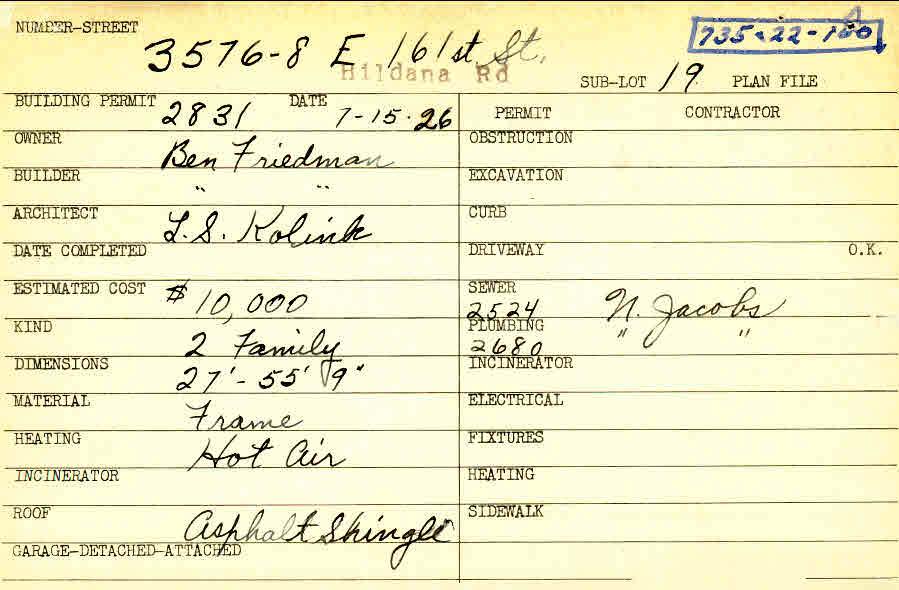 NUMBER-STREET
3576-8 E 161st St.
Hildana Rd
735-22-180
SUB-LOT 19 PLAN FILE
BUILDING PERMIT 2831 DATE 7-15-26
PERMIT CONTRACTOR
OWNER Ben Friedman
OBSTRUCTION
BUILDER " "
EXCAVATION
ARCHITECT L.S. Kolink
CURB
DATE COMPLETED
DRIVEWAY O.K.
ESTIMATED COST $10,000
SEWER 2524 N. Jacobs
KIND 2 Family
PLUMBING 2680 " "
DIMENSIONS 27'-55' 9"
INCINERATOR
MATERIAL Frame
ELECTRICAL
HEATING Hot Air
FIXTURES
INCINERATOR
HEATING
ROOF Asphalt Shingle
SIDEWALK
GARAGE-DETACHED-ATTACHED